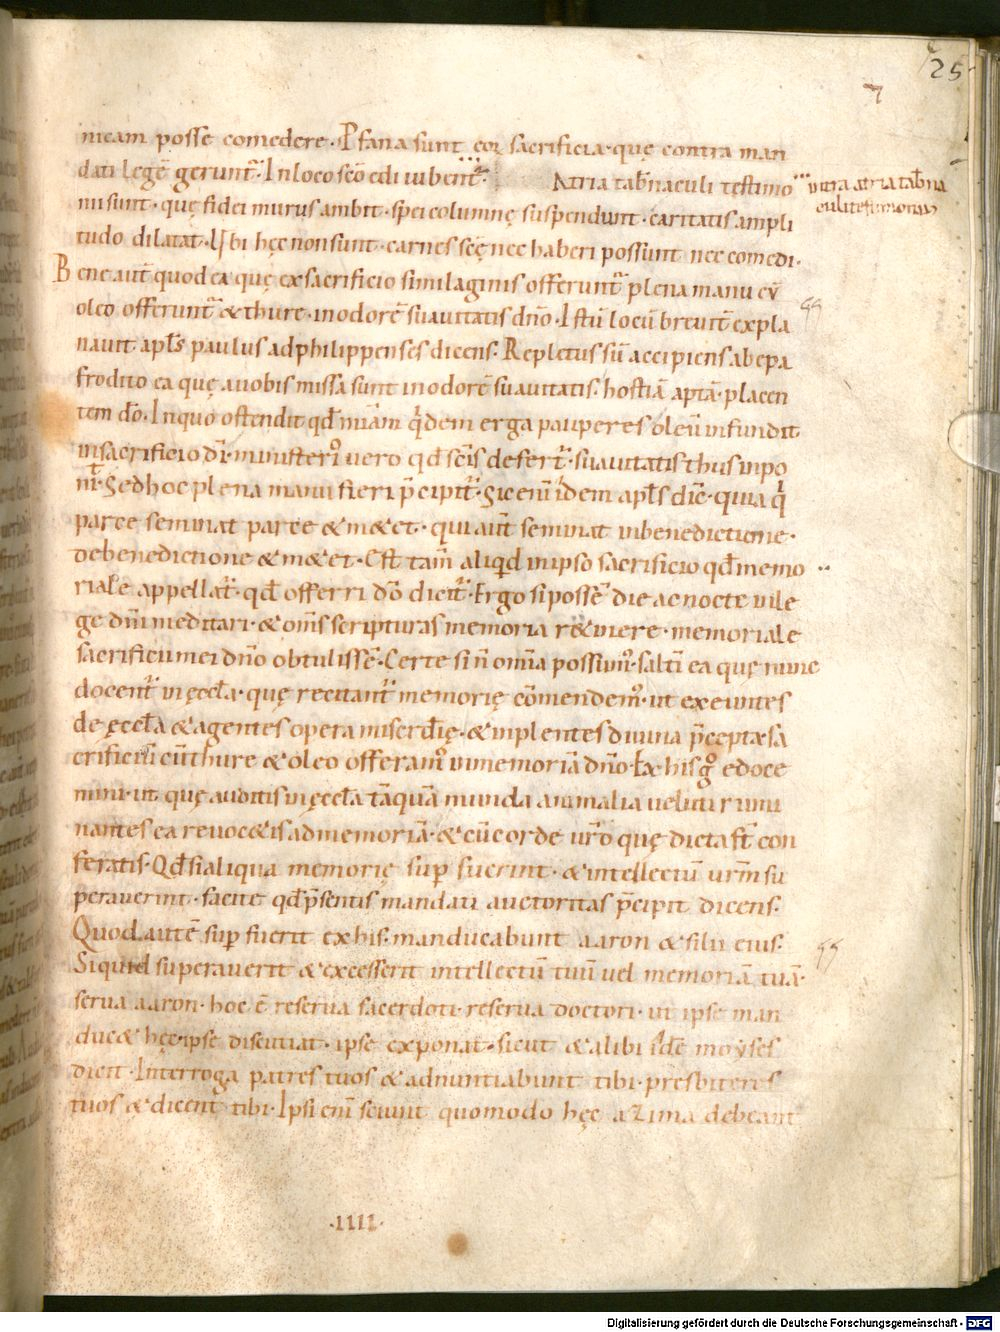 25
7
nicam posse comedere. Pfana sunt eoꝝ sacrificia. quę contra man
dati legē gerunt᷑. In loco sc̄o edi iubent᷑. Atria tab̄naculi testimo
intra atria tab̄na
culi testimonii
nii sunt. quę fidei murus ambit. spei columnę suspendunt. caritatis ampli
tudo dilatat. Ubi hęc non sunt. carnes scę̄ nec haberi possunt nec comedi.
Bene aut̄ quod ea quę ex sacrificio similaginis offerunt᷑ plena manu cū
oleo offerunt᷑ & thure. in odorē suauitatis dn̄o. Istū locū breuit̄ expla
nauit apl̄s paulus ad philippenses dicens. Repletus sū accipiens ab epa
frodito ea quę a uobis missa sunt in odorē suauitatis. hostiā aptā. placen
tem dō. In quo ostendit qd̄ miām q͛dem erga pauperes oleū infundit
in sacrificio dī. ministeriꝰ uero qd̄ sc̄is defert᷑. suauitatis thus inpo
nit᷑. Sed hoc plena manu fieri p̄cipit᷑. Sic enī idem apl̄s dīc. quia q͛
parce seminat parce & m&et. qui aut̄ seminat in benedictione.
de benedictione & m&et. Est tam̄ aliqͥd in ipso sacrificio qd̄ memo
riale appellat᷑. qd̄ offerri dō dicit᷑. Ergo si possē die ac nocte in le
ge dn̄i meditari. & om̄s scripturas memoria r&inere. memoriale
sacrificii mei dn̄o obtulissē. Certe si n̄ omnia possumꝰ. saltī ea quę nunc
docent᷑ in ęccl̄a. quę recitant᷑ memorię cōmendemꝰ. ut exeuntes
de ęccl̄a & agentes opera misericord̄ię. & inplentes diuina p̄cepta. sa
crificiū cū thure & oleo offeramꝰ in memoriā dn̄o. Ex his gͦ edoce
mini. ut quę auditis in ęccl̄a tāquā munda animalia uelut rumi
nantes ea reuoc&is ad memoriā. & cū corde ur̄o quę dicta st̄ con
feratis. Qd̄ si aliqua memorię sup fuerint. & intellectū urm̄ su
perauerint. facite qd̄ p̄sentis mandati auctoritas p̄cipit dicens.
Quod autē sup fuerit ex his. manducabunt aaron & filii eius.
Si quid superauerit & excesserit intellectum tuū uel memoriā tuā.
serua aaron. hoc ē reserua sacerdoti. reserua doctori. ut ipse man
duc& hęc. ipse discutiat. ipse exponat. sicut & alibi idē moyses
dicit. Interroga patres tuos & adnuntiabunt tibi. presbiteros
tuos & dicent tibi. Ipsi enī sciunt quomodo hęc azima debeant
.IIII.
Digitalisierung gefördert durch die Deutsche Forschungsgemeinschaft - DFG